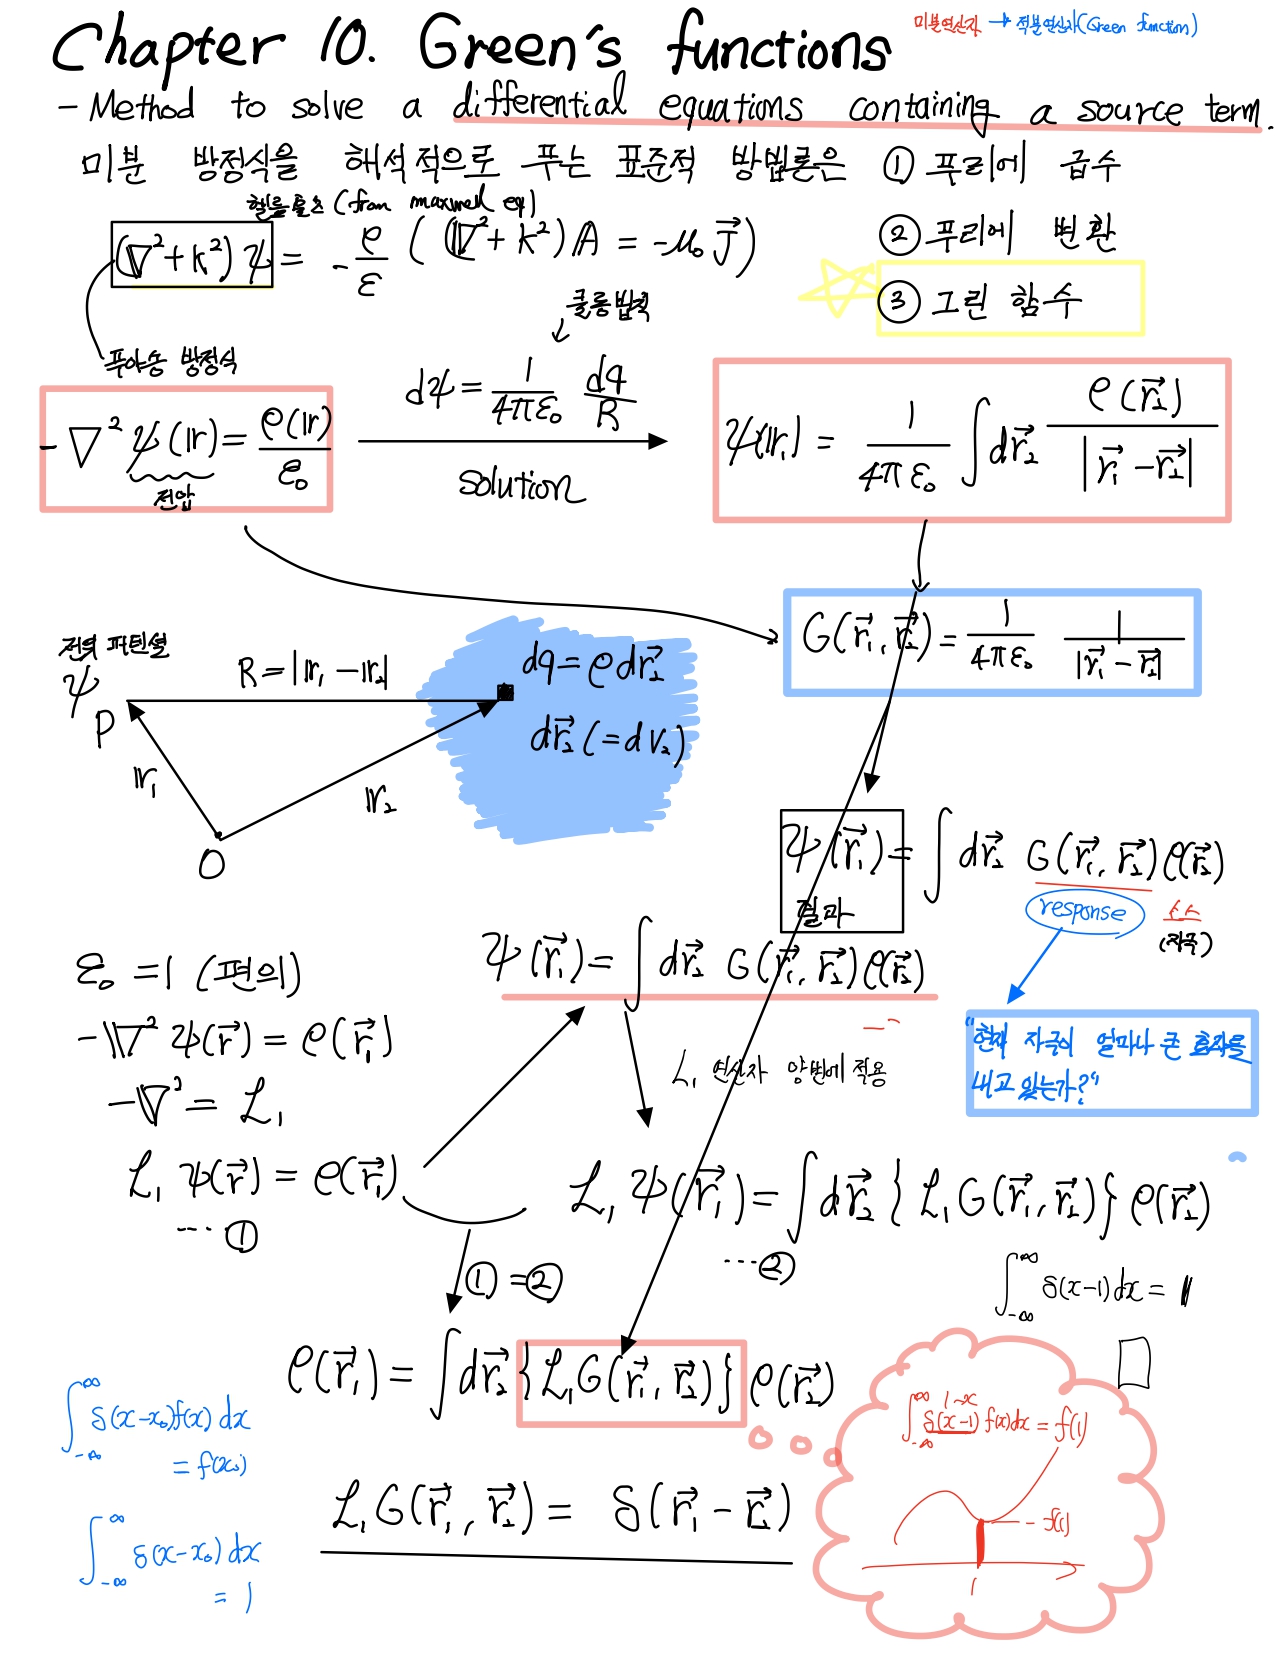 미분연산자 → 적분연산자(Green function)
Chapter 10. Green's functions
- Method to solve a differential equations containing a source term.
미분 방정식을 해석적으로 푸는 표준적 방법론은 ① 푸리에 급수
② 푸리에 변환
③ 그린 함수
헬름홀츠 (from maxwell eq)
(∇²+k²)ψ = -ρ/ε ( (∇²+k²)A = -μ₀J⃗ )
푸아송 방정식
쿨롱 법칙
-∇²ψ(r) = ρ(r)/ε₀
전압
dψ = 1/4πε₀ dq/R
solution
ψ(r₁) = 1/4πε₀ ∫dr⃗₂ ρ(r⃗₂)/|r⃗₁-r⃗₂|
G(r⃗₁, r⃗₂) = 1/4πε₀ 1/|r⃗₁-r⃗₂|
전역 퍼텐셜
ψ
P
R = |r₁-r₂|
dq = ρdr⃗₂
dr⃗₂ (=dV₂)
r₁
r₂
O
ψ(r⃗₁) = ∫dr⃗₂ G(r⃗₁, r⃗₂)ρ(r⃗₂)
결과
response
소스
(자극)
"현재 자극이 얼마나 큰 효과를
내고 있는가?"
ε₀ = 1 (편의)
-∇²ψ(r⃗) = ρ(r⃗₁)
-∇² = ℒ₁
ℒ₁ψ(r⃗) = ρ(r⃗₁)
…①
ψ(r⃗₁) = ∫dr⃗₂ G(r⃗₁, r⃗₂)ρ(r⃗₂)
ℒ₁ 연산자 양변에 적용
ℒ₁ψ(r⃗₁) = ∫dr⃗₂{ℒ₁G(r⃗₁, r⃗₂)}ρ(r⃗₂)
…②
① = ②
∫_{-∞}^{∞} δ(x-1)dx = 1
ρ(r⃗₁) = ∫dr⃗₂{ℒ₁G(r⃗₁, r⃗₂)}ρ(r⃗₂)
ℒ₁G(r⃗₁, r⃗₂) = δ(r⃗₁-r⃗₂)
∫_{-∞}^{∞} δ(x-x₀)f(x)dx
= f(x₀)
∫_{-∞}^{∞} δ(x-x₀)dx
= 1
1-x
∫_{-∞}^{∞} δ(x-1)f(x)dx = f(1)
f(1)
1